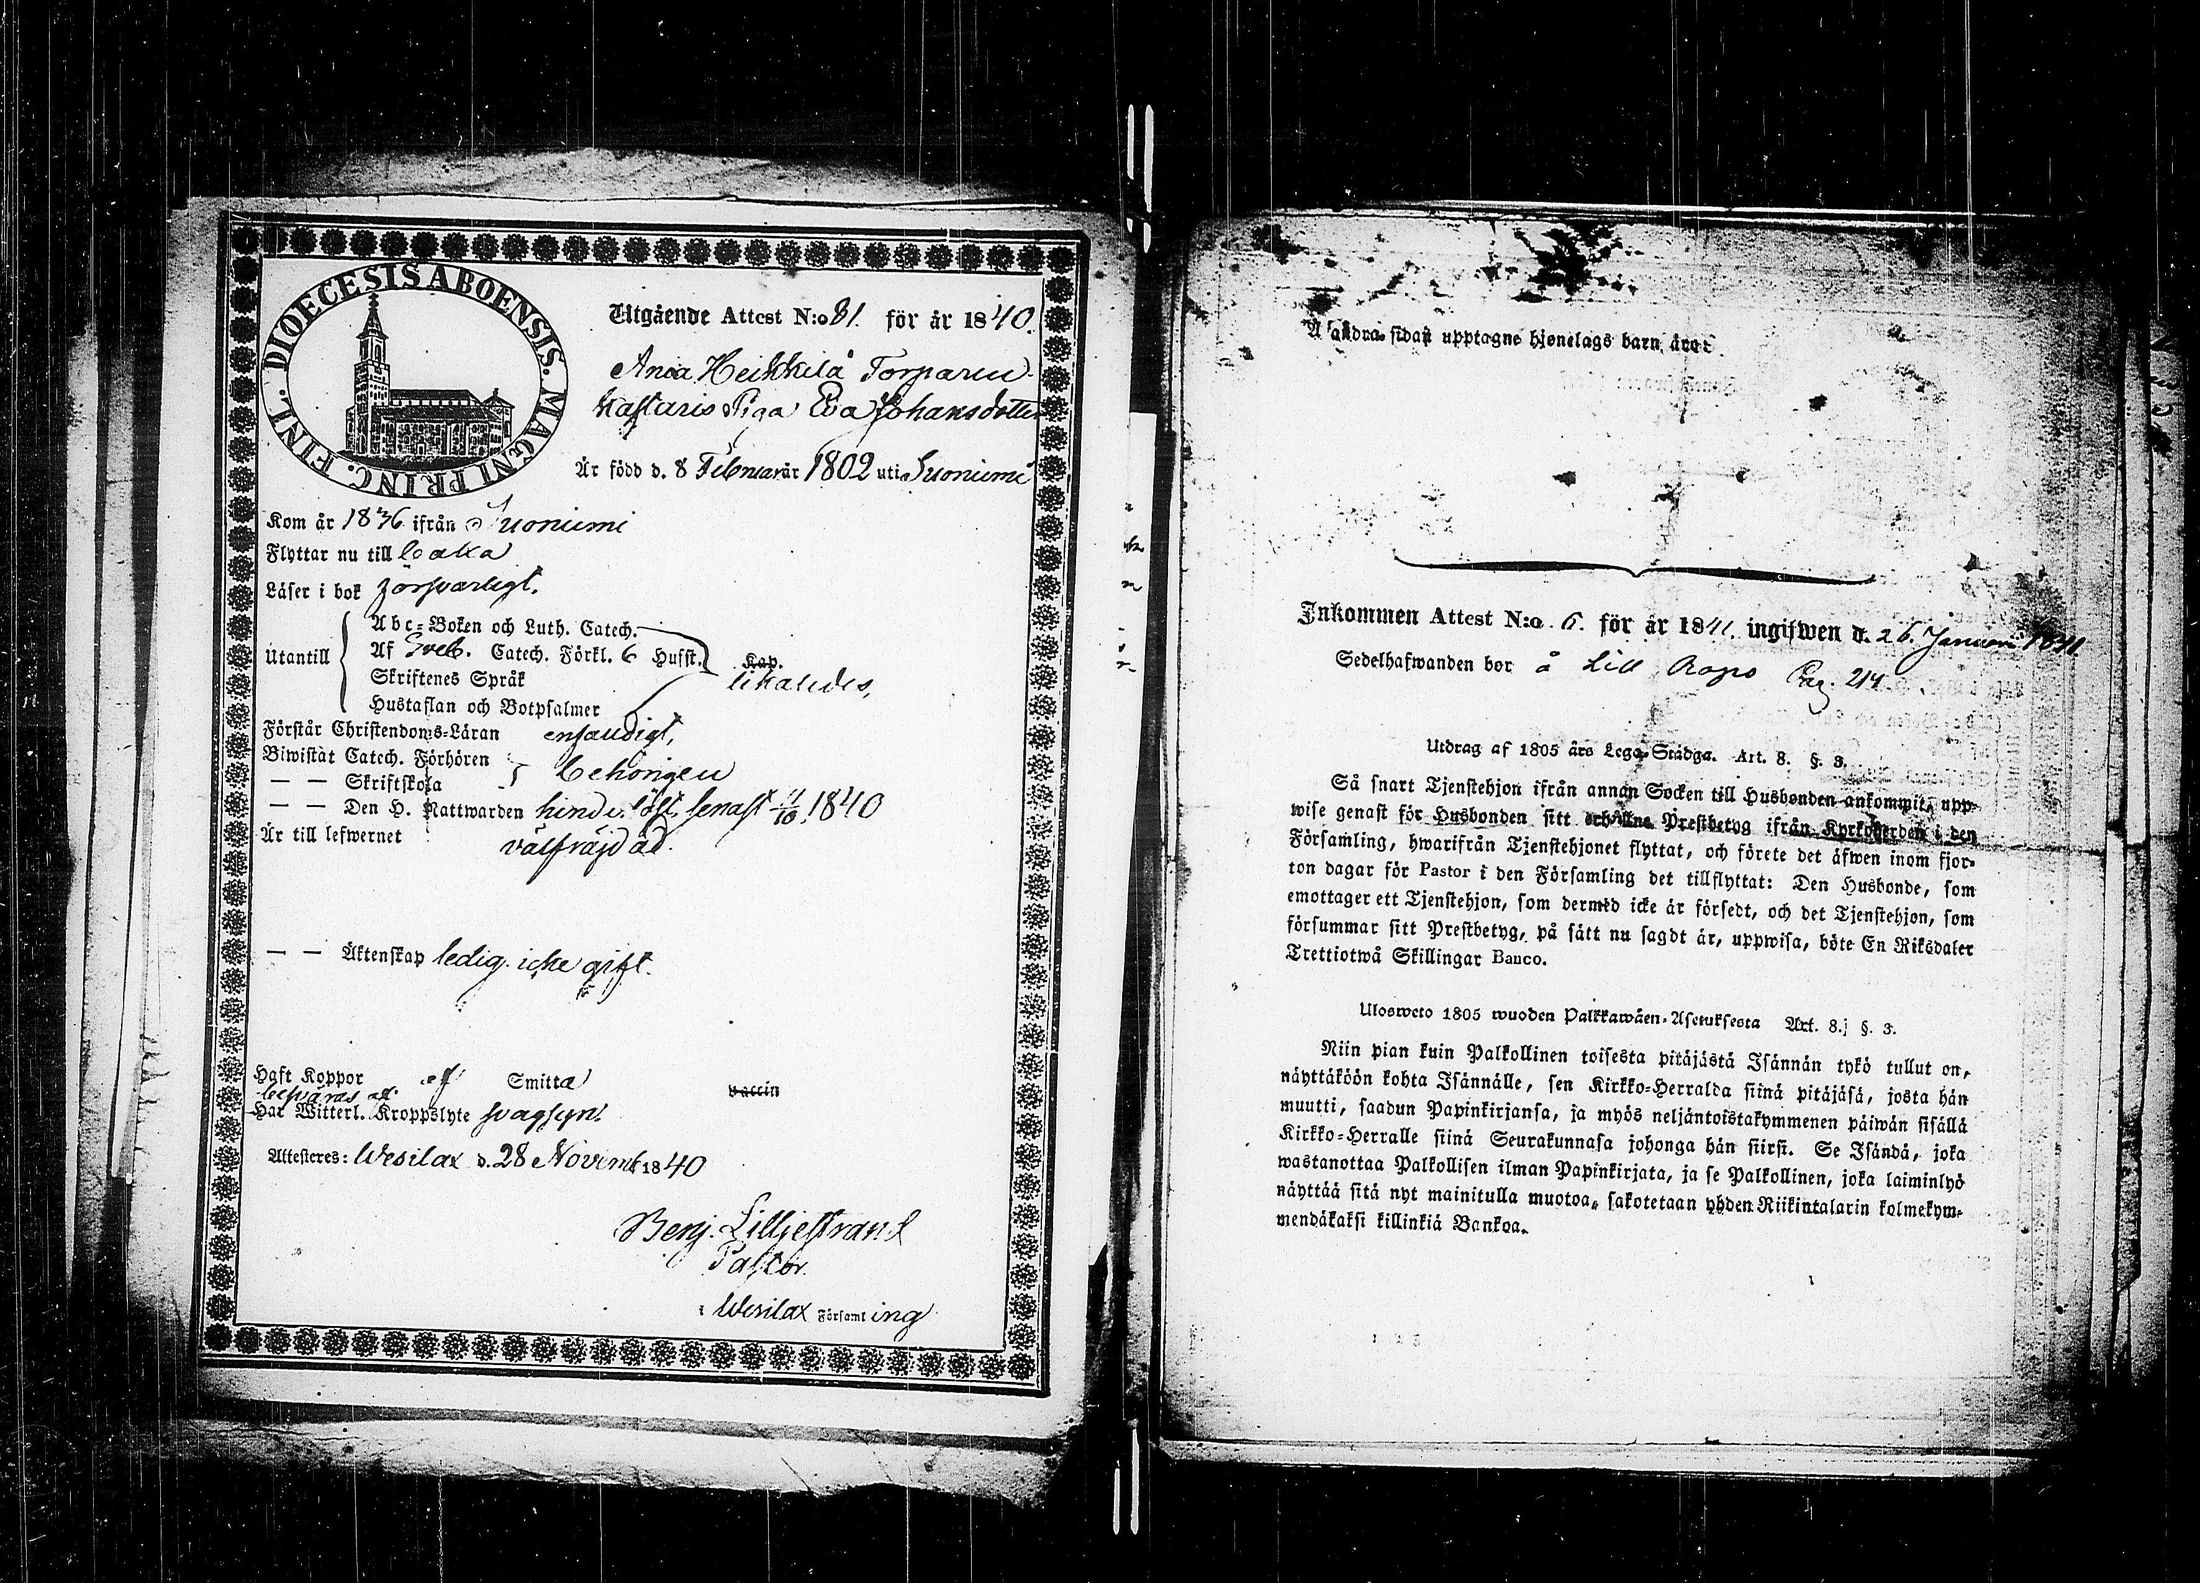 DIOECESIS ABOENSIS. MAGNI PRINC. FINL.
Utgående Attest N:o 81. för år 1840.
Heikkilä Torparen
Piga Eva Johansdotter
Är född d. 8 Februar år 1802 uti Suoniemi
Kom år 1836 ifrån Suoniemi
Flyttar nu till
Läser i bok försvarligt.
Utantill
Abc-Boken och Luth. Catech.
Af Sveb. Catech. Förkl. 6 Hufst. Kap.
Skriftenes Språk likaledes,
Hustaflan och Botpsalmer
Förstår Christendoms-Läran enfaudigt,
Biwistat Catech. Förhören
— — Skriftskola behörigen
— — Den H. Nattwarden senast 4/10 1840
Är till lefwernet välfräjdad.
— — Äktenskap ledig icke gift.
Haft Koppor af Smitta vaccin
besväras af
Har Witterl. Kroppslyte svagsynt.
Attesteres: Wesilax d. 28 Novemb 1840
Benj. Lilljestrand
Pastor
i Wesilax Församling
Å andra sidan upptagne hjonelags barn äro:
Inkommen Attest N:o 6. för år 1841. ingifwen d. 26. Januari 1841
Sedelhafwanden bor å Lill Pag. 214
Utdrag af 1805 års Lego-Stadga. Art. 8. §. 3.
Så snart Tjenstehjon ifrån annan Socken till Husbonden ankommit, upp-
wise genast för Husbonden sitt erhållne Prestbetyg ifrån Kyrkoherden i den
Församling, hwarifrån Tjenstehjonet flyttat, och förete det äfwen inom fjor-
ton dagar för Pastor i den Församling det tillflyttat: Den Husbonde, som
emottager ett Tjenstehjon, som dermed icke är försedt, och det Tjenstehjon, som
försummar sitt Prestbetyg, på sätt nu sagdt är, uppwisa, böte En Riksdaler
Trettiotwå Skillingar Banco.
Ulosweto 1805 wuoden Palkkawäen-Asetuksesta Art. 8. §. 3.
Niin pian kuin Palkollinen toisesta pitäjästä Isännän tykö tullut on,
näyttäköön kohta Isännälle, sen Kirkko-Herralda siinä pitäjäsä, josta hän
muutti, saadun Papinkirjansa, ja myös neljäntoistakymmenen päiwän sisällä
Kirkko-Herralle siinä Seurakunnasa johonga hän siirsi. Se Isändä, joka
wastanottaa Palkollisen ilman Papinkirjata, ja se Palkollinen, joka laiminlyö
näyttää sitä nyt mainitulla muotoa, sakotetaan yhden Riikintalarin kolmekym-
mendäkaksi killinkiä Bankoa.